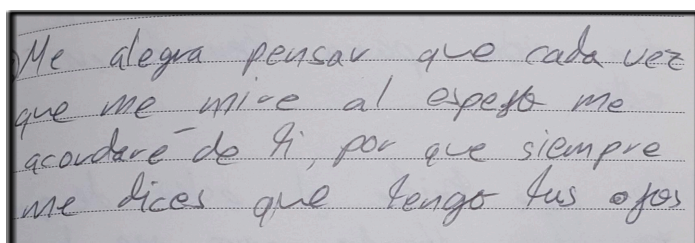 Me alegra pensar que cada vez
que me mire al espejo me
acordare de ti, por que siempre
me dices que tengo tus ojos